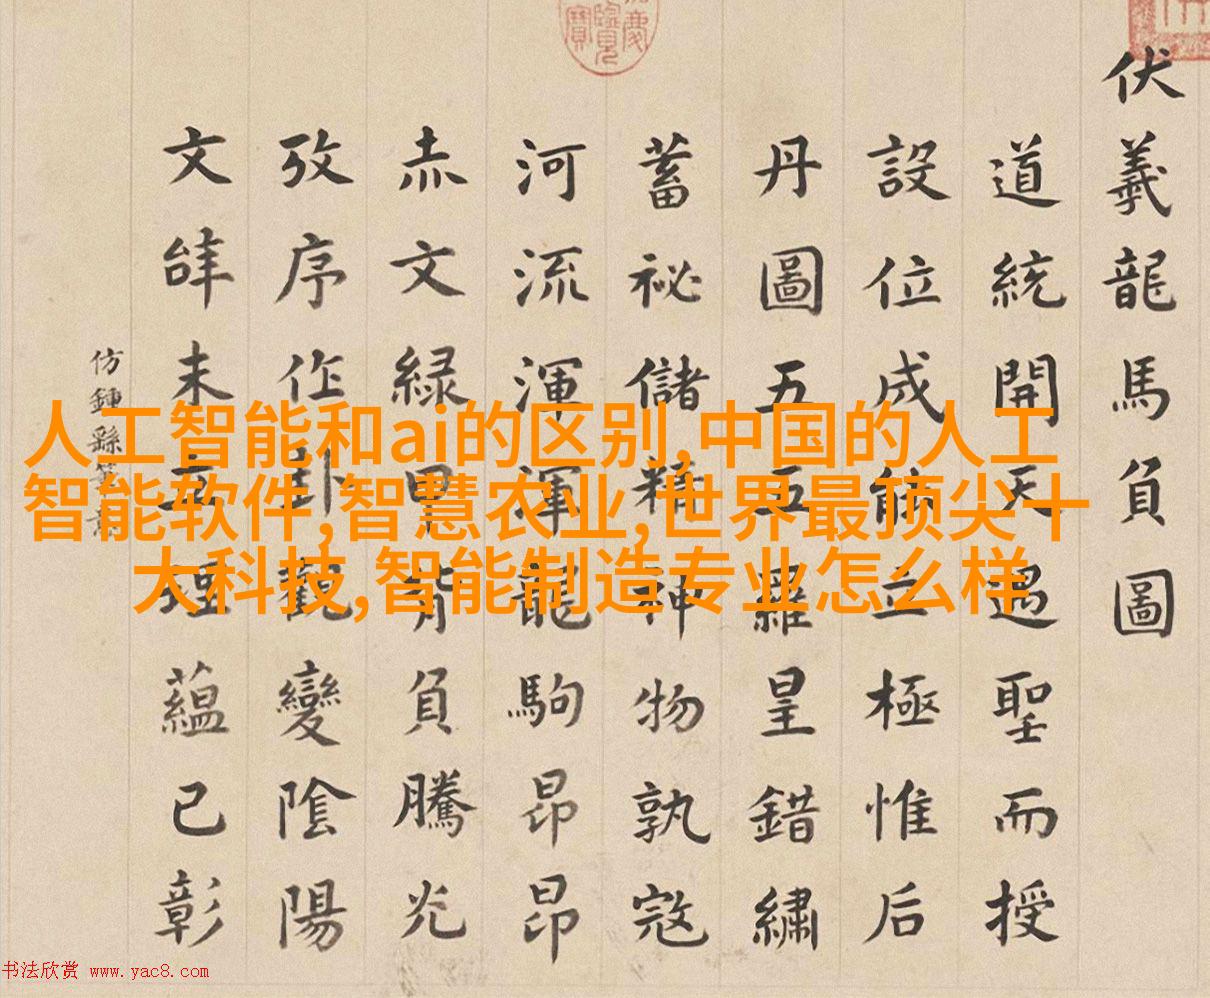 伏羲龍馬負圖
道統開天遇聖而授
設位成能立極惟后
丹圖五五羅皇錯繡
蓄祕儲精神物孰寇
河流渾渾龍駒昂昂
赤文緑甲背負騰光
攷序作卦觀變陰陽
文辝未理蘊已彰
仿鍾繇筆
人工智能和ai的区别,中国的人工
智能软件,智慧农业,世界最顶尖十
大科技,智能制造专业怎么样
书法欣赏 www.yac8.com